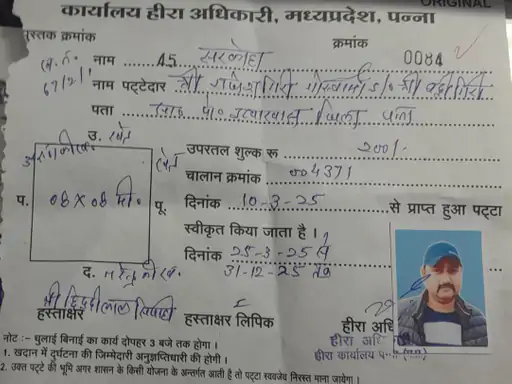 ORIGINAL
कार्यालय हीरा अधिकारी, मध्यप्रदेश, पन्ना
पुस्तक क्रमांक क्रमांक
नाम 45 सरकोहा 0084
67/21
नाम पट्टेदार श्री राजेश गिरी गोस्वामी S/o श्री
पता पो. जिला पन्ना
उ. खेत
उपरतल शुल्क रू 200/-
खेत
चालान क्रमांक 004371
प. 08 X 08 मी. पू.
दिनांक 10-3-25 से प्राप्त हुआ पट्टा
स्वीकृत किया जाता है।
दिनांक 25-3-25 से
द. 31-12-25 तक
हस्ताक्षर हस्ताक्षर लिपिक हीरा अधि
हीरा अधि
हीरा कार्यालय
नोट :- धुलाई बिनाई का कार्य दोपहर 3 बजे तक होगा।
1. खदान में दुर्घटना की जिम्मेदारी अनुज्ञप्तिधारी की होगी।
2. उक्त पट्टे की भूमि अगर शासन के किसी योजना के अन्तर्गत आती है तो पट्टा स्वयमेव निरस्त माना जायेगा।